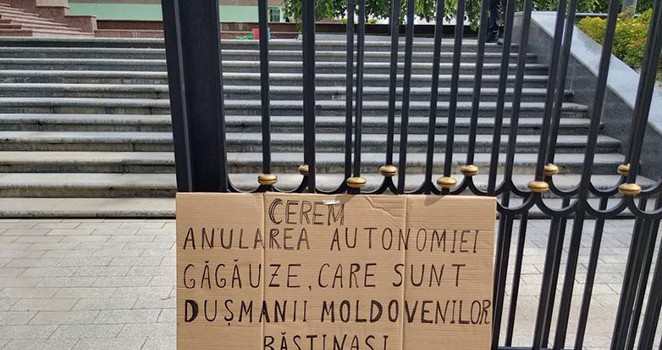 CEREM
ANULAREA AUTONOMIEI
GĂGĂUZE, CARE SUNT
DUȘMANII MOLDOVENILOR
BĂȘTINAȘI